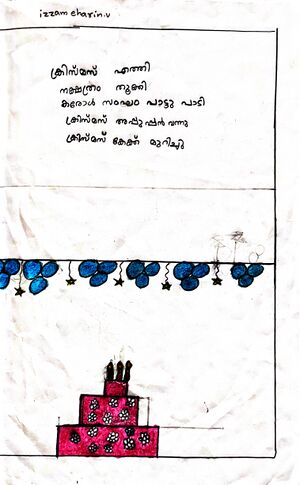 izzam eharin.v
ക്രിസ്മസ് എത്തി
നക്ഷത്രം തൂങ്ങി
കരോൾ സംഘം പാട്ടു പാടി
ക്രിസ്മസ് അപ്പൂപ്പൻ വന്നു
ക്രിസ്മസ് കേക്ക് മുറിച്ചു